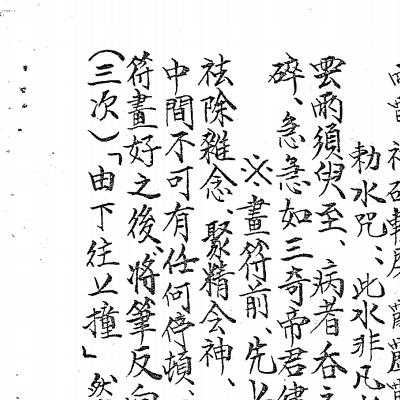 勅水咒：此水非凡
雲雨須臾至、病者吞
碎、急急如三奇帝君律
※畫符前、先
祛除雜念、聚精会神、
中間不可有任何停頓、
符畫好之後、將筆反向
（三次）「由下往上撞」然